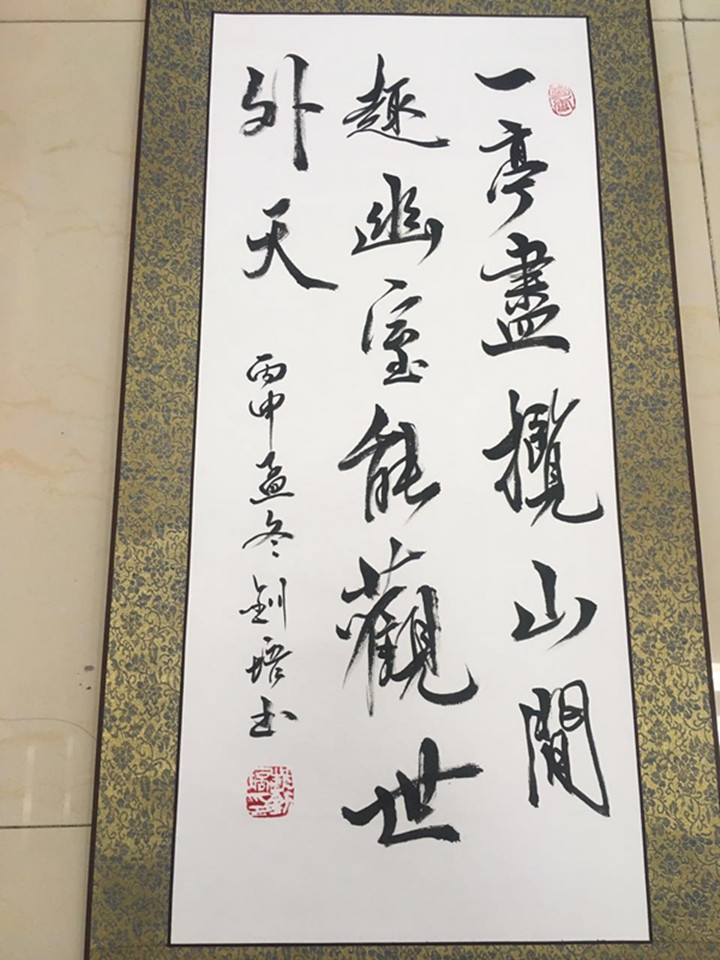 一亭盡攬山閒
趣幽室能觀世
外天
丙申孟冬釗培书